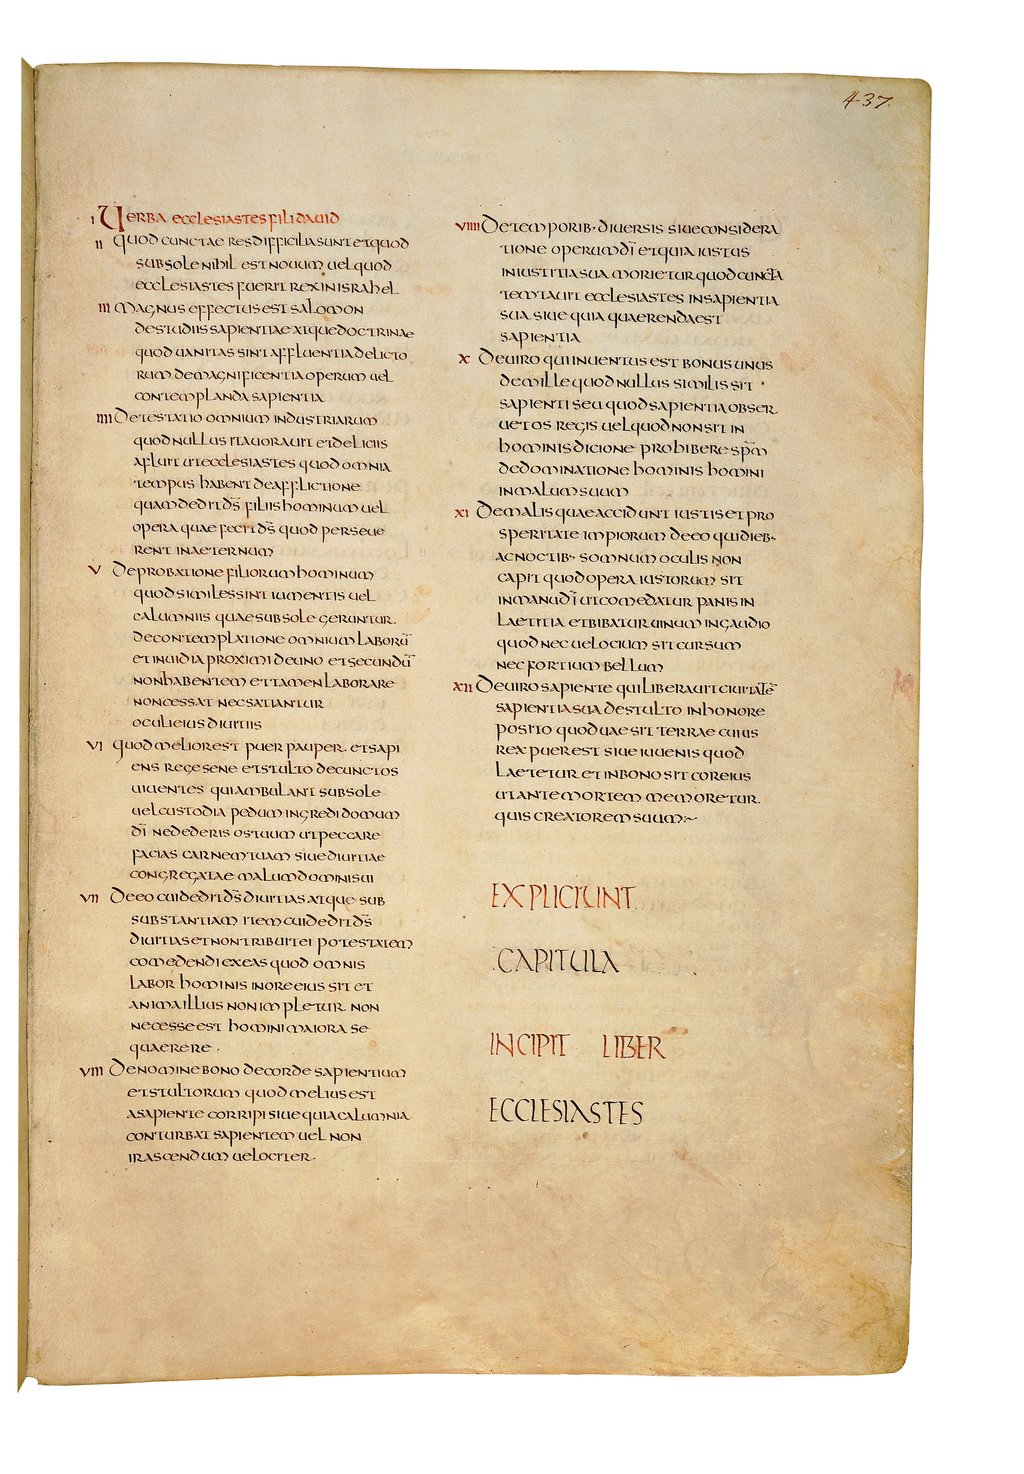 437
I UERBA ECCLESIASTES FILI DAUID
II QUOD CUNCTAE RES DIFFICILIA SUNT ET QUOD
SUB SOLE NIHIL EST NOUUM UEL QUOD
ECCLESIASTES FUERIT REX IN ISRAHEL
III MAGNUS EFFECTUS EST SALOMON
DE STUDIIS SAPIENTIAE ATQUE DOCTRINAE
QUOD UANITAS SINT AFFLUENTIA DELICTO
RUM DE MAGNIFICENTIA OPERUM UEL
CONTEMPLANDA SAPIENTIA
IIII DETESTATIO OMNIUM INDUSTRIARUM
QUOD NULLUS ITA UORAUIT ET DELICIIS
AFLUIT UT ECCLESIASTES QUOD OMNIA
TEMPUS HABENT DE AFFLICTIONE
QUAM DEDIT D̄S FILIIS HOMINUM UEL
OPERA QUAE FECIT D̄S QUOD PERSEUE
RENT IN AETERNUM
V DE PROBATIONE FILIORUM HOMINUM
QUOD SIMILES SINT IUMENTIS UEL
CALUMNIIS QUAE SUB SOLE GERUNTUR.
DE CONTEMPLATIONE OMNIUM LABORŪ
ET INUIDIA PROXIMI DE UNO ET SECUNDŪ
NON HABENTEM ET TAMEN LABORARE
NON CESSAT NEC SATIANTUR
OCULI EIUS DIUITIIS
VI QUOD MELIOR EST PUER PAUPER. ET SAPI
ENS REGE SENE ET STULTO DE CUNCTOS
UIUENTES QUI AMBULANT SUB SOLE
UEL CUSTODIA PEDUM INGREDI DOMUM
D̄I NE DEDERIS OS TUUM UT PECCARE
FACIAS CARNEM TUAM SIUE DIUITIAE
CONGREGATAE MALUM DOMINI SUI
VII DE EO CUI DEDIT D̄S DIUITIAS ATQUE SUB
SUBSTANTIAM ITEM CUI DEDIT D̄S
DIUITIAS ET NON TRIBUIT EI POTESTATEM
COMEDENDI EX EAS QUOD OMNIS
LABOR HOMINIS IN ORE EIUS SIT ET
ANIMA ILLIUS NON IMPLETUR NON
NECESSE EST HOMINI MAIORA SE
QUAERERE.
VIII DE NOMINE BONO DE CORDE SAPIENTIUM
ET STULTORUM QUOD MELIUS EST
A SAPIENTE CORRIPI SIUE QUIA CALUMNIA
CONTURBAT SAPIENTEM UEL NON
IRASCENDUM UELOCITER.
VIIII DE TEMPORIB· DIUERSIS SIUE CONSIDERA
TIONE OPERUM D̄I ET QUIA IUSTUS
IN IUSTITIA SUA MORIETUR QUOD CUNCTA
TEMTAUIT ECCLESIASTES IN SAPIENTIA
SUA SIUE QUIA QUAERENDA EST
SAPIENTIA
X DE UIRO QUI INUENTUS EST BONUS UNUS
DE MILLE QUOD NULLUS SIMILIS SIT
SAPIENTI SEU QUOD SAPIENTIA OBSER
UET OS REGIS UEL QUOD NON SIT IN
HOMINIS DICIONE PROHIBERE SP̄M
DE DOMINATIONE HOMINIS HOMINI
IN MALUM SUUM
XI DE MALIS QUAE ACCIDUNT IUSTIS ET PRO
SPERITATE IMPIORUM DE EO QUI DIEB·
AC NOCTIB· SOMNUM OCULIS NON
CAPIT QUOD OPERA IUSTORUM SIT
IN MANU D̄I UT COMEDATUR PANIS IN
LAETITIA ET BIBATUR UINUM IN GAUDIO
QUOD NEC UELOCIUM SIT CURSUM
NEC FORTIUM BELLUM
XII DE UIRO SAPIENTE QUI LIBERAUIT CIUITATĒ
SAPIENTIA SUA DE STULTO IN HONORE
POSITO QUOD UAE SIT TERRAE CUIUS
REX PUER EST SIUE IUUENIS QUOD
LAETETUR ET IN BONO SIT COR EIUS
UT ANTE MORTEM MEMORETUR.
QUIS CREATOREM SUUM:~
EXPLICIUNT
CAPITULA
INCIPIT LIBER
ECCLESIASTES